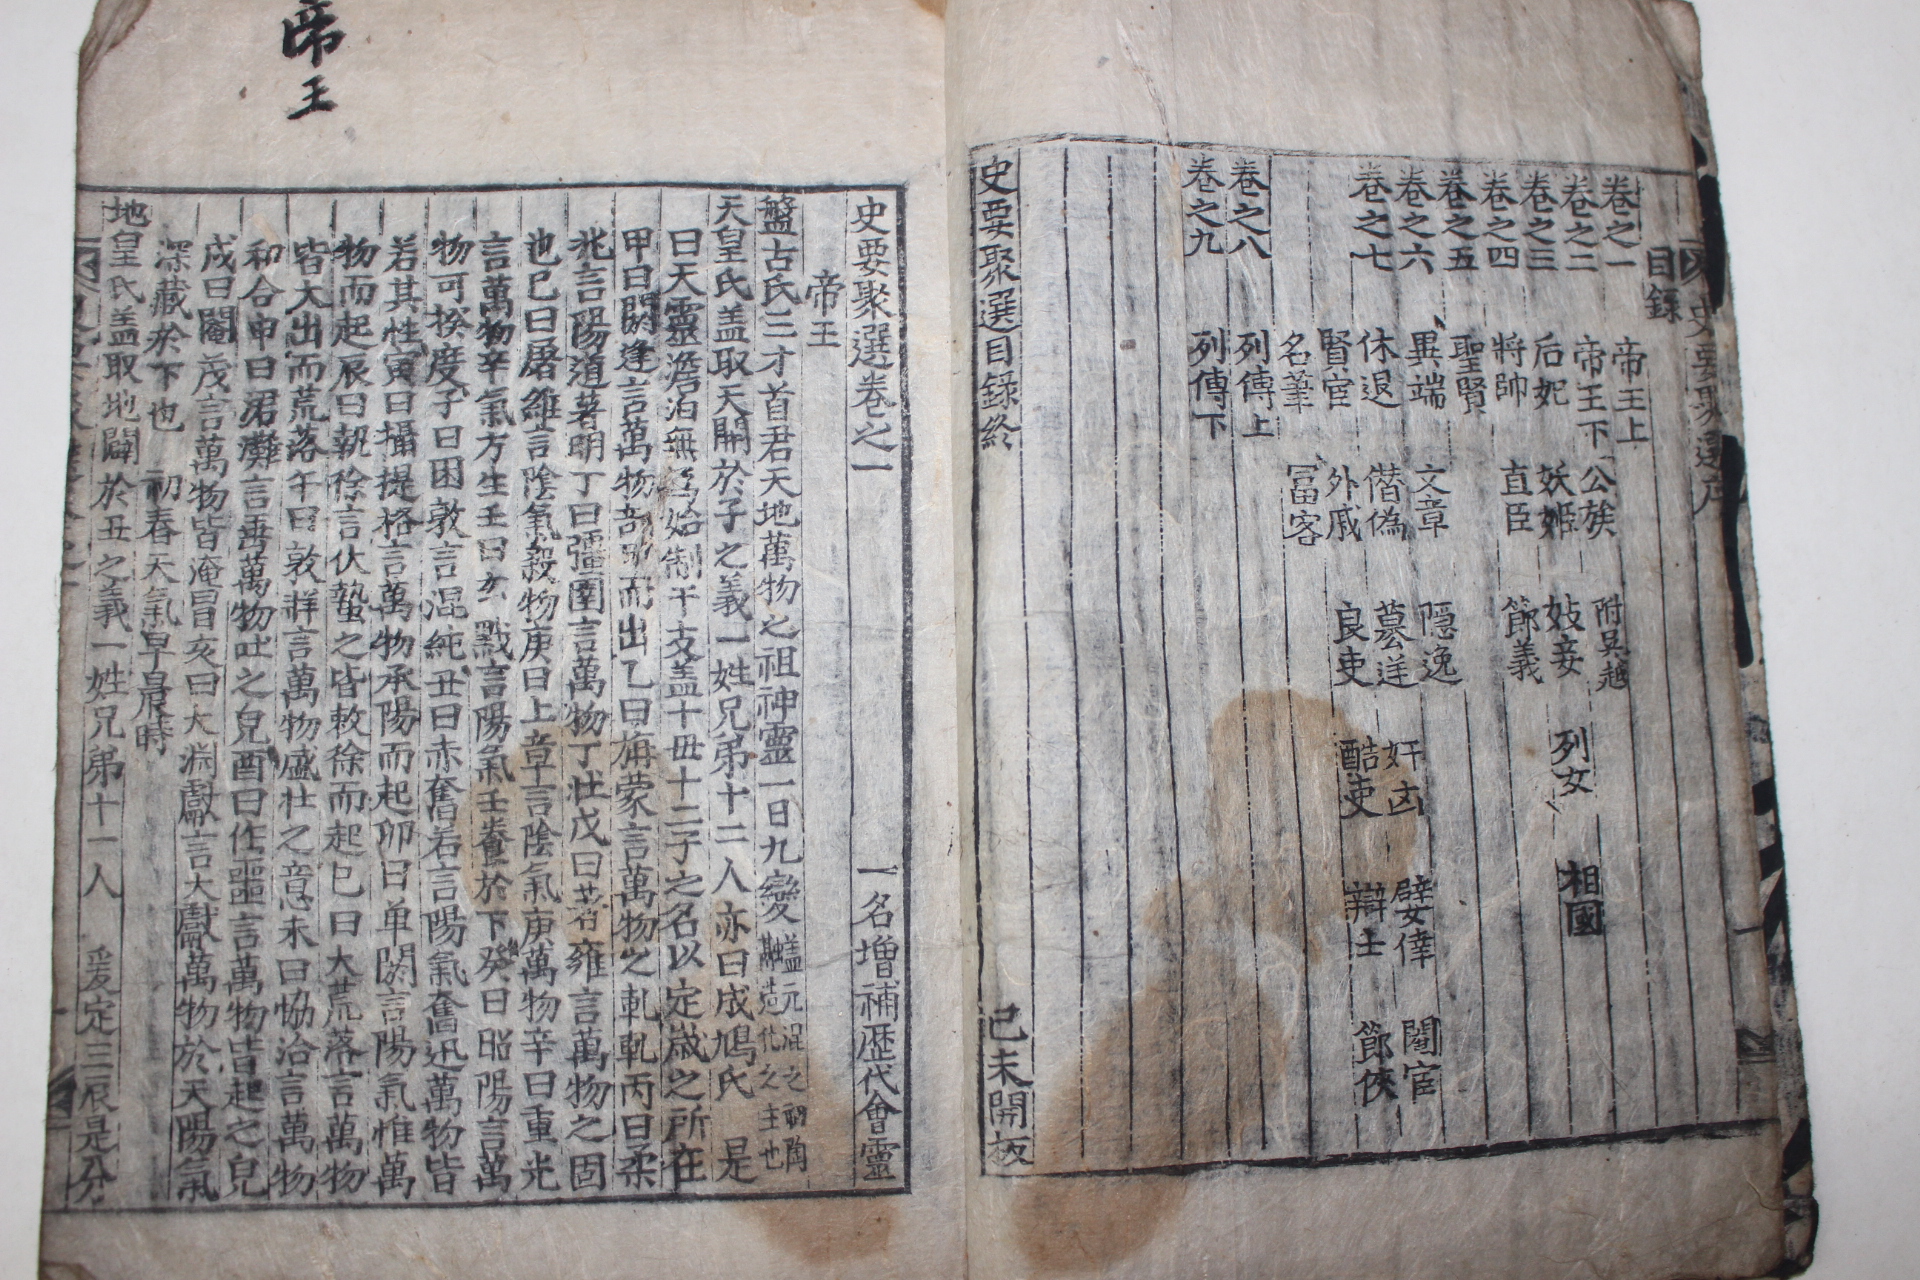 史要聚選序
目錄
卷之一 帝王上
卷之二 帝王下 公族 附吳越
卷之三 后妃 妖姬 妓妾 列女 相國
卷之四 將帥 直臣 節義
卷之五 聖賢
卷之六 異端 文章 隱逸
卷之七 休退 僭偽 墓送 奸凶 嬖倖 閹宦
賢宦 外戚 良吏 酷吏 辯士 節俠
名筆 富客
卷之八 列傳上
卷之九 列傳下
史要聚選目錄終 己未開板
帝王
史要聚選卷之一 一名增補歷代會靈
帝王
盤古氏三才首君天地萬物之祖神靈一日九變盖元混之初陶融造化之主也
天皇氏盖取天開於子之義一姓兄弟十二人亦曰成鳩氏 是
曰天靈澹泊無爲始制干支盖十母十二子之名以定歲之所在
甲曰閼逢言萬物剖甲而出乙曰旃蒙言萬物之軋軋丙曰柔
兆言陽道著明丁曰彊圉言萬物丁壯戊曰著雍言萬物之固
也己曰屠維言陰氣穀物庚曰上章言陰氣庚萬物辛曰重光
言萬物辛氣方生壬曰玄黓言陽氣壬養於下癸曰昭陽言萬
物可揆度子曰困敦言混純丑曰赤奮若言陽氣奮迅萬物皆
若其性寅曰攝提格言萬物承陽而起卯曰单閼言陽氣惟萬
物而起辰曰執徐言伏蟄之皆敕徐而起巳曰大荒落言萬物
皆大出而荒落午曰敦牂言萬物盛壯之意未曰恊洽言萬物
和合申曰涒灘言萬物吐之皃酉曰作噩言萬物皆起之皃
戌曰閹茂言萬物皆淹冒亥曰大淵獻言大獻萬物於天陽氣
深藏於下也 初春天氣早晨時
地皇氏盖取地闢於丑之義一姓兄弟十一人 爰定三辰是分